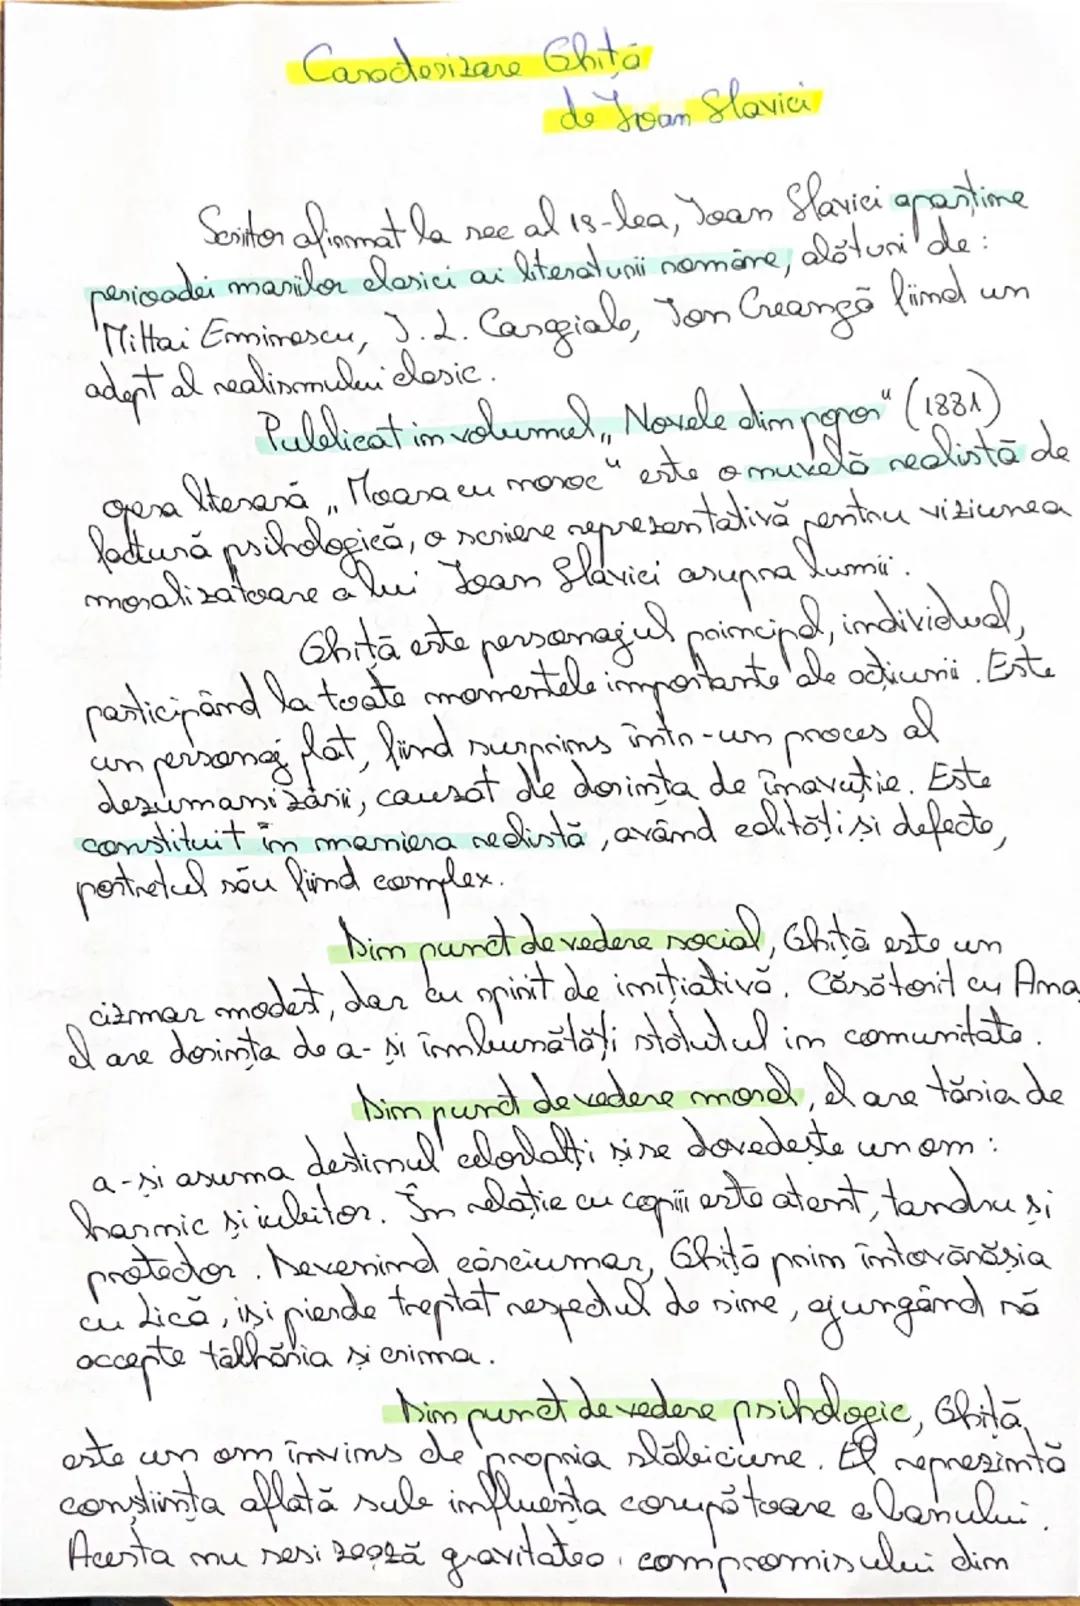 Caracterizare Ghiță
de Ioan Slavici
Scriitor afirmat la sec al 19-lea, Ioan Slavici aparține
perioadei marilor clasici ai literaturii române, alături de:
Mihai Eminescu, I. L. Caragiale, Ion Creangă fiind un
adept al realismului clasic.
Publicat în volumul „Novele din popor" (1881)
opera literară „Moara cu noroc" este o nuvelă realistă de
factură psihologică, o scriere reprezentativă pentru viziunea
moralizatoare a lui Ioan Slavici asupra lumii.
Ghiță este personajul principal, individual,
participând la toate momentele importante ale acțiunii. Este
un personaj plat, fiind surprins într-un proces al
dezumanizării, cauzat de dorința de înavuție. Este
constituit în maniera realistă, având calități și defecte,
portretul său fiind complex.
Din punct de vedere social, Ghiță este un
cizmar modest, dar cu spirit de inițiativă. Căsătorit cu Ana,
el are dorința de a-și îmbunătăți statutul în comunitate.
Din punct de vedere moral, el are tăria de
a-și asuma destinul celorlalți și se dovedește un om:
harnic și iubitor. În relație cu copiii este atent, tandru și
protector. Devenind cârciumar, Ghiță prin întovărășia
cu Lică, își pierde treptat respectul de sine, ajungând să
accepte tâlhăria și crima.
Din punct de vedere psihologic, Ghiță,
este un om învins de propria slăbiciune. El reprezintă
conștiința aflată sub influența corupătoare a banului.
Acesta nu sesizează gravitatea compromisului din